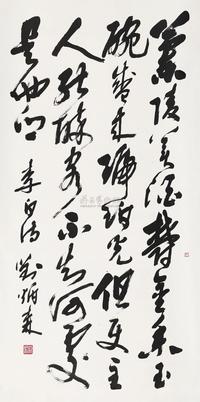 蘭陵美酒鬱金香玉
碗盛来琥珀光但使主
人能醉客不知何處
是他鄉 李白詩 劉炳森